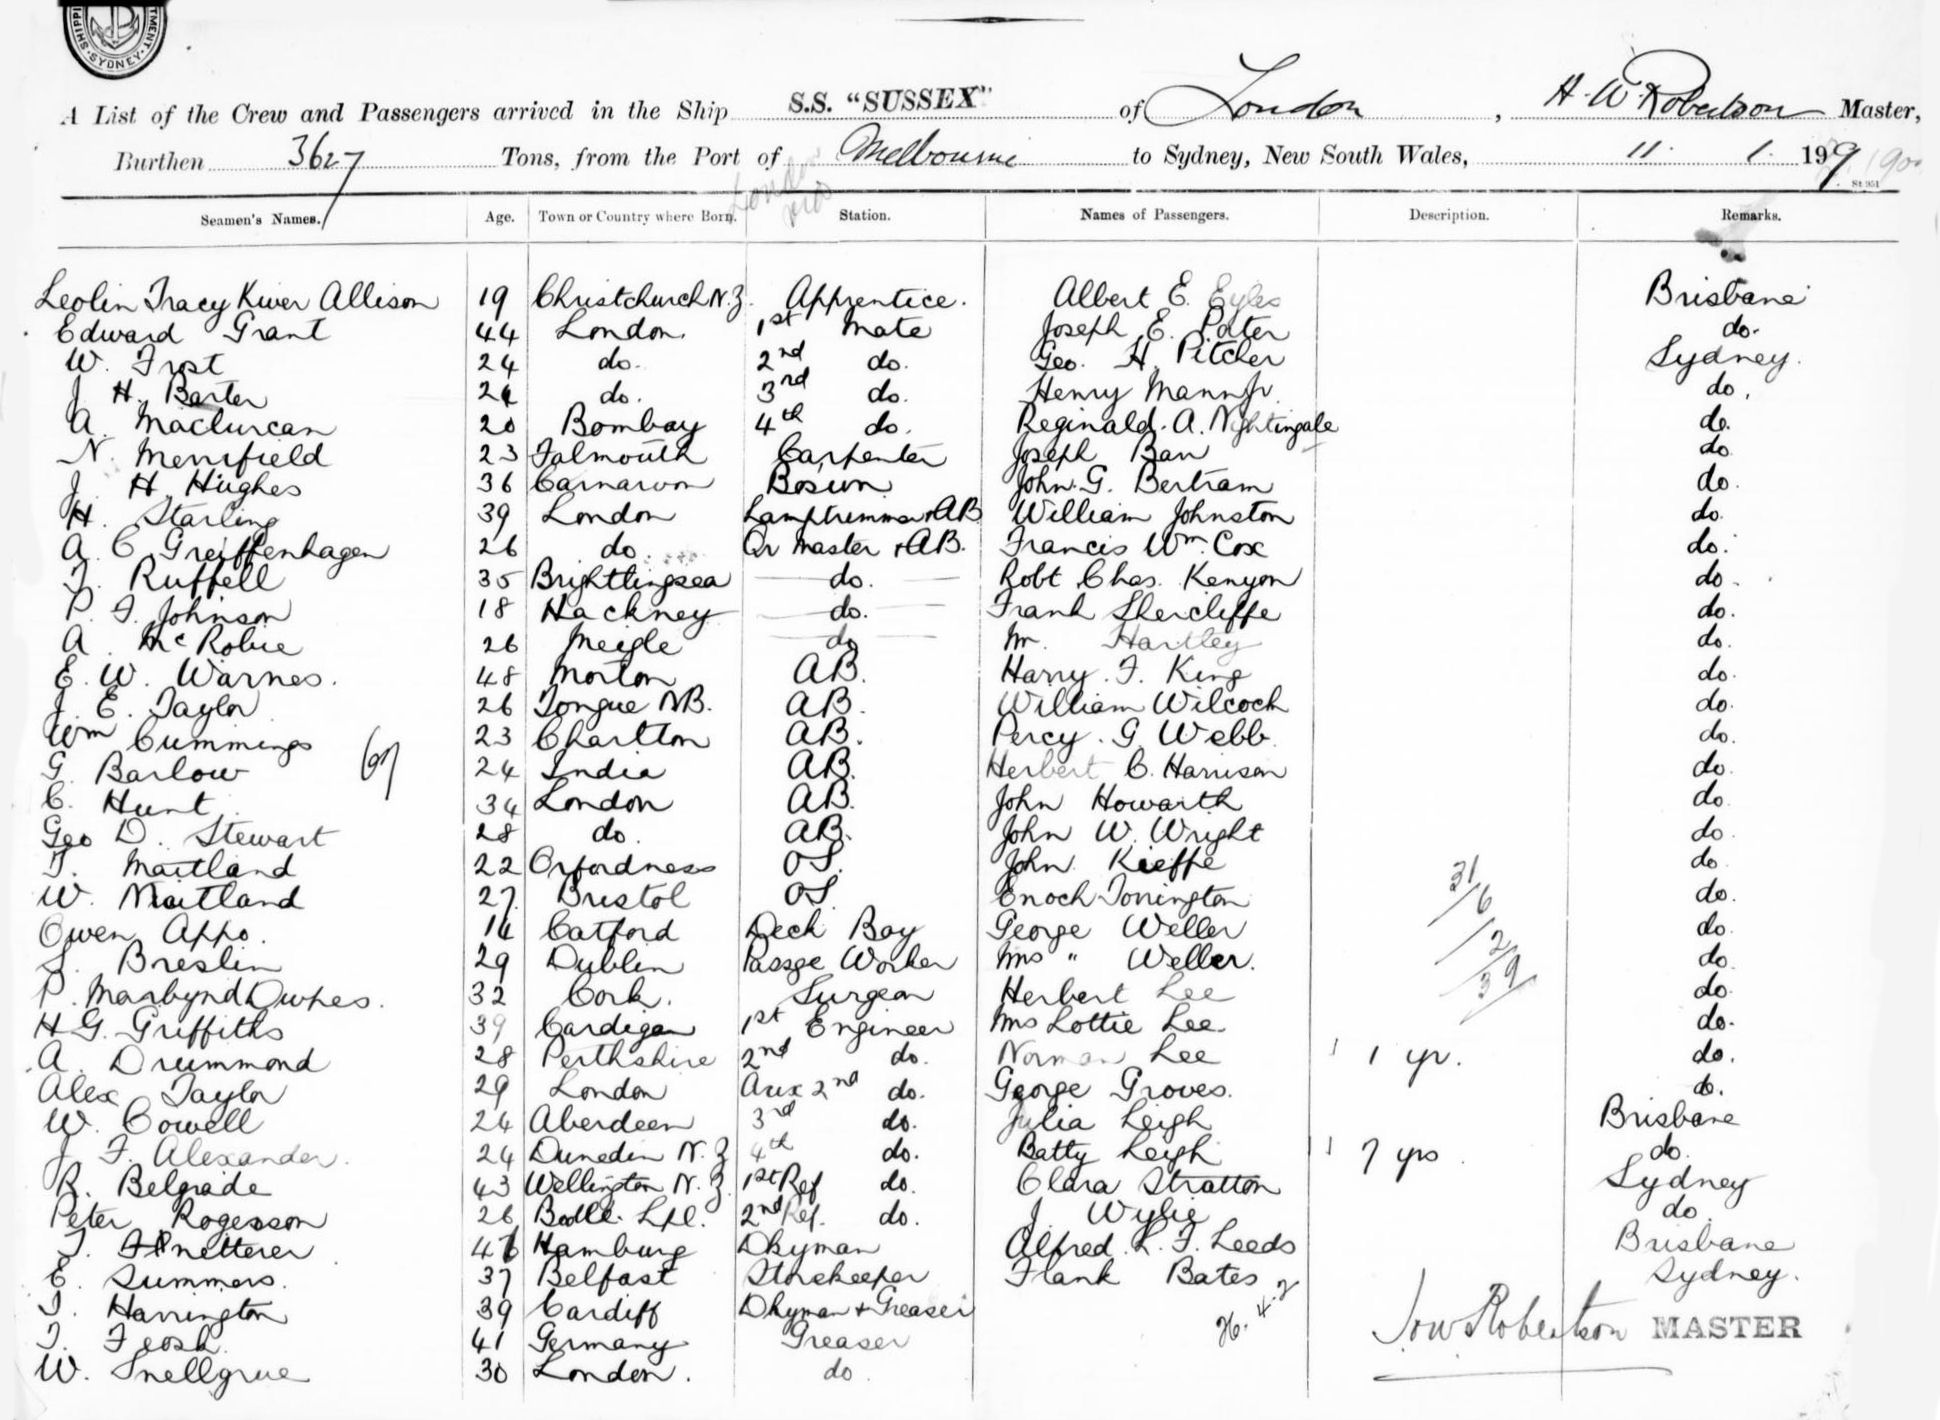 SHIPPI TMENT · SYDNEY ·
A List of the Crew and Passengers arrived in the Ship S.S. "SUSSEX" of London, H. W. Robertson Master,
Burthen 3627 Tons, from the Port of Melbourne to Sydney, New South Wales, 11. 1. 199 1900
London
St 951
Seamen's Names. Age. Town or Country where Born. Station. Names of Passengers. Description. Remarks.
Leolin Tracy Allison 19 Christchurch N.Z. Apprentice. Albert E. Eyles Brisbane
Edward Grant 44 London. 1st Mate Joseph E. Pater do.
W. Frost 24 do. 2nd do. Geo. H. Pitcher Sydney.
J. H. Barter do. 3rd do. Henry Mann Jr. do.
A. Maclurcan 20 Bombay 4th do. Reginald. A. Nightingale do.
N. Merrifield 23 Falmouth Carpenter Joseph do
J. H. Hughes 36 Carnarvon Bosun John. G. Bertram do.
H. Starling 39 London Lamptrimmer + AB William Johnston do.
A. C Greiffenhagen 26 do. Qr Master + AB. Francis Wm. Cox do.
T. Ruffell 35 Brightlingsea do. Robt Chas. Kenyon do.
P. F. Johnson 18 Hackney do. Frank Shercliffe do.
A. McRobie 26 Meigle do Mr. Hartley do.
E. W. Warnes. 48 Morton AB. Harry. F. King do.
J. E. Taylor 26 Tongue NB. AB. William Wilcock do.
Wm Cummings 23 Charlton AB. Percy. G Webb. do.
G. Barlow 67 24 India AB. Herbert C. Harrison do.
C. Hunt 34 London AB. John Howarth do.
Geo D. Stewart 28 do. AB. John W. Wright do.
T. Maitland 22 Orfordness OS. John Kieffe do
W. Maitland 27 Bristol OS. Enoch Torrington 31/6 do.
Owen Appo. Catford Deck Boy George Weller do.
Breslin 29 Dublin Passge Worker Mrs " Weller. 2 do.
P. 32 Cork. Surgeon Herbert Lee 39 do.
H G. Griffiths 39 Cardigan 1st Engineer Mrs Lottie Lee. do.
A. Drummond 28 Perthshire 2nd do. Norman Lee 1 1 yr. do.
Alex Taylor 29 London Aux 2nd do. George Groves. do.
W. Cowell 24 Aberdeen 3rd do. Julia Leigh Brisbane
J. F. Alexander. 24 Dunedin N. Z 4th do. Batty Leigh 1 7 yrs. do.
R. Belgrade 43 Wellington N. Z. 1st Ref do. Clara Stratton Sydney
Peter Rogesson 26 2nd Ref. do. J. Wylie do.
T. Hamburg Dkyman Alfred. L. F. Leeds Brisbane
E. Summers. 37 Belfast Storekeeper Frank Bates Sydney.
T. Harrington 39 Cardiff Dkyman + Greaser 26. 4. 2
Robertson MASTER
T. Feosh 41 Germany Greaser
W. Snellgrue 30 London. do.